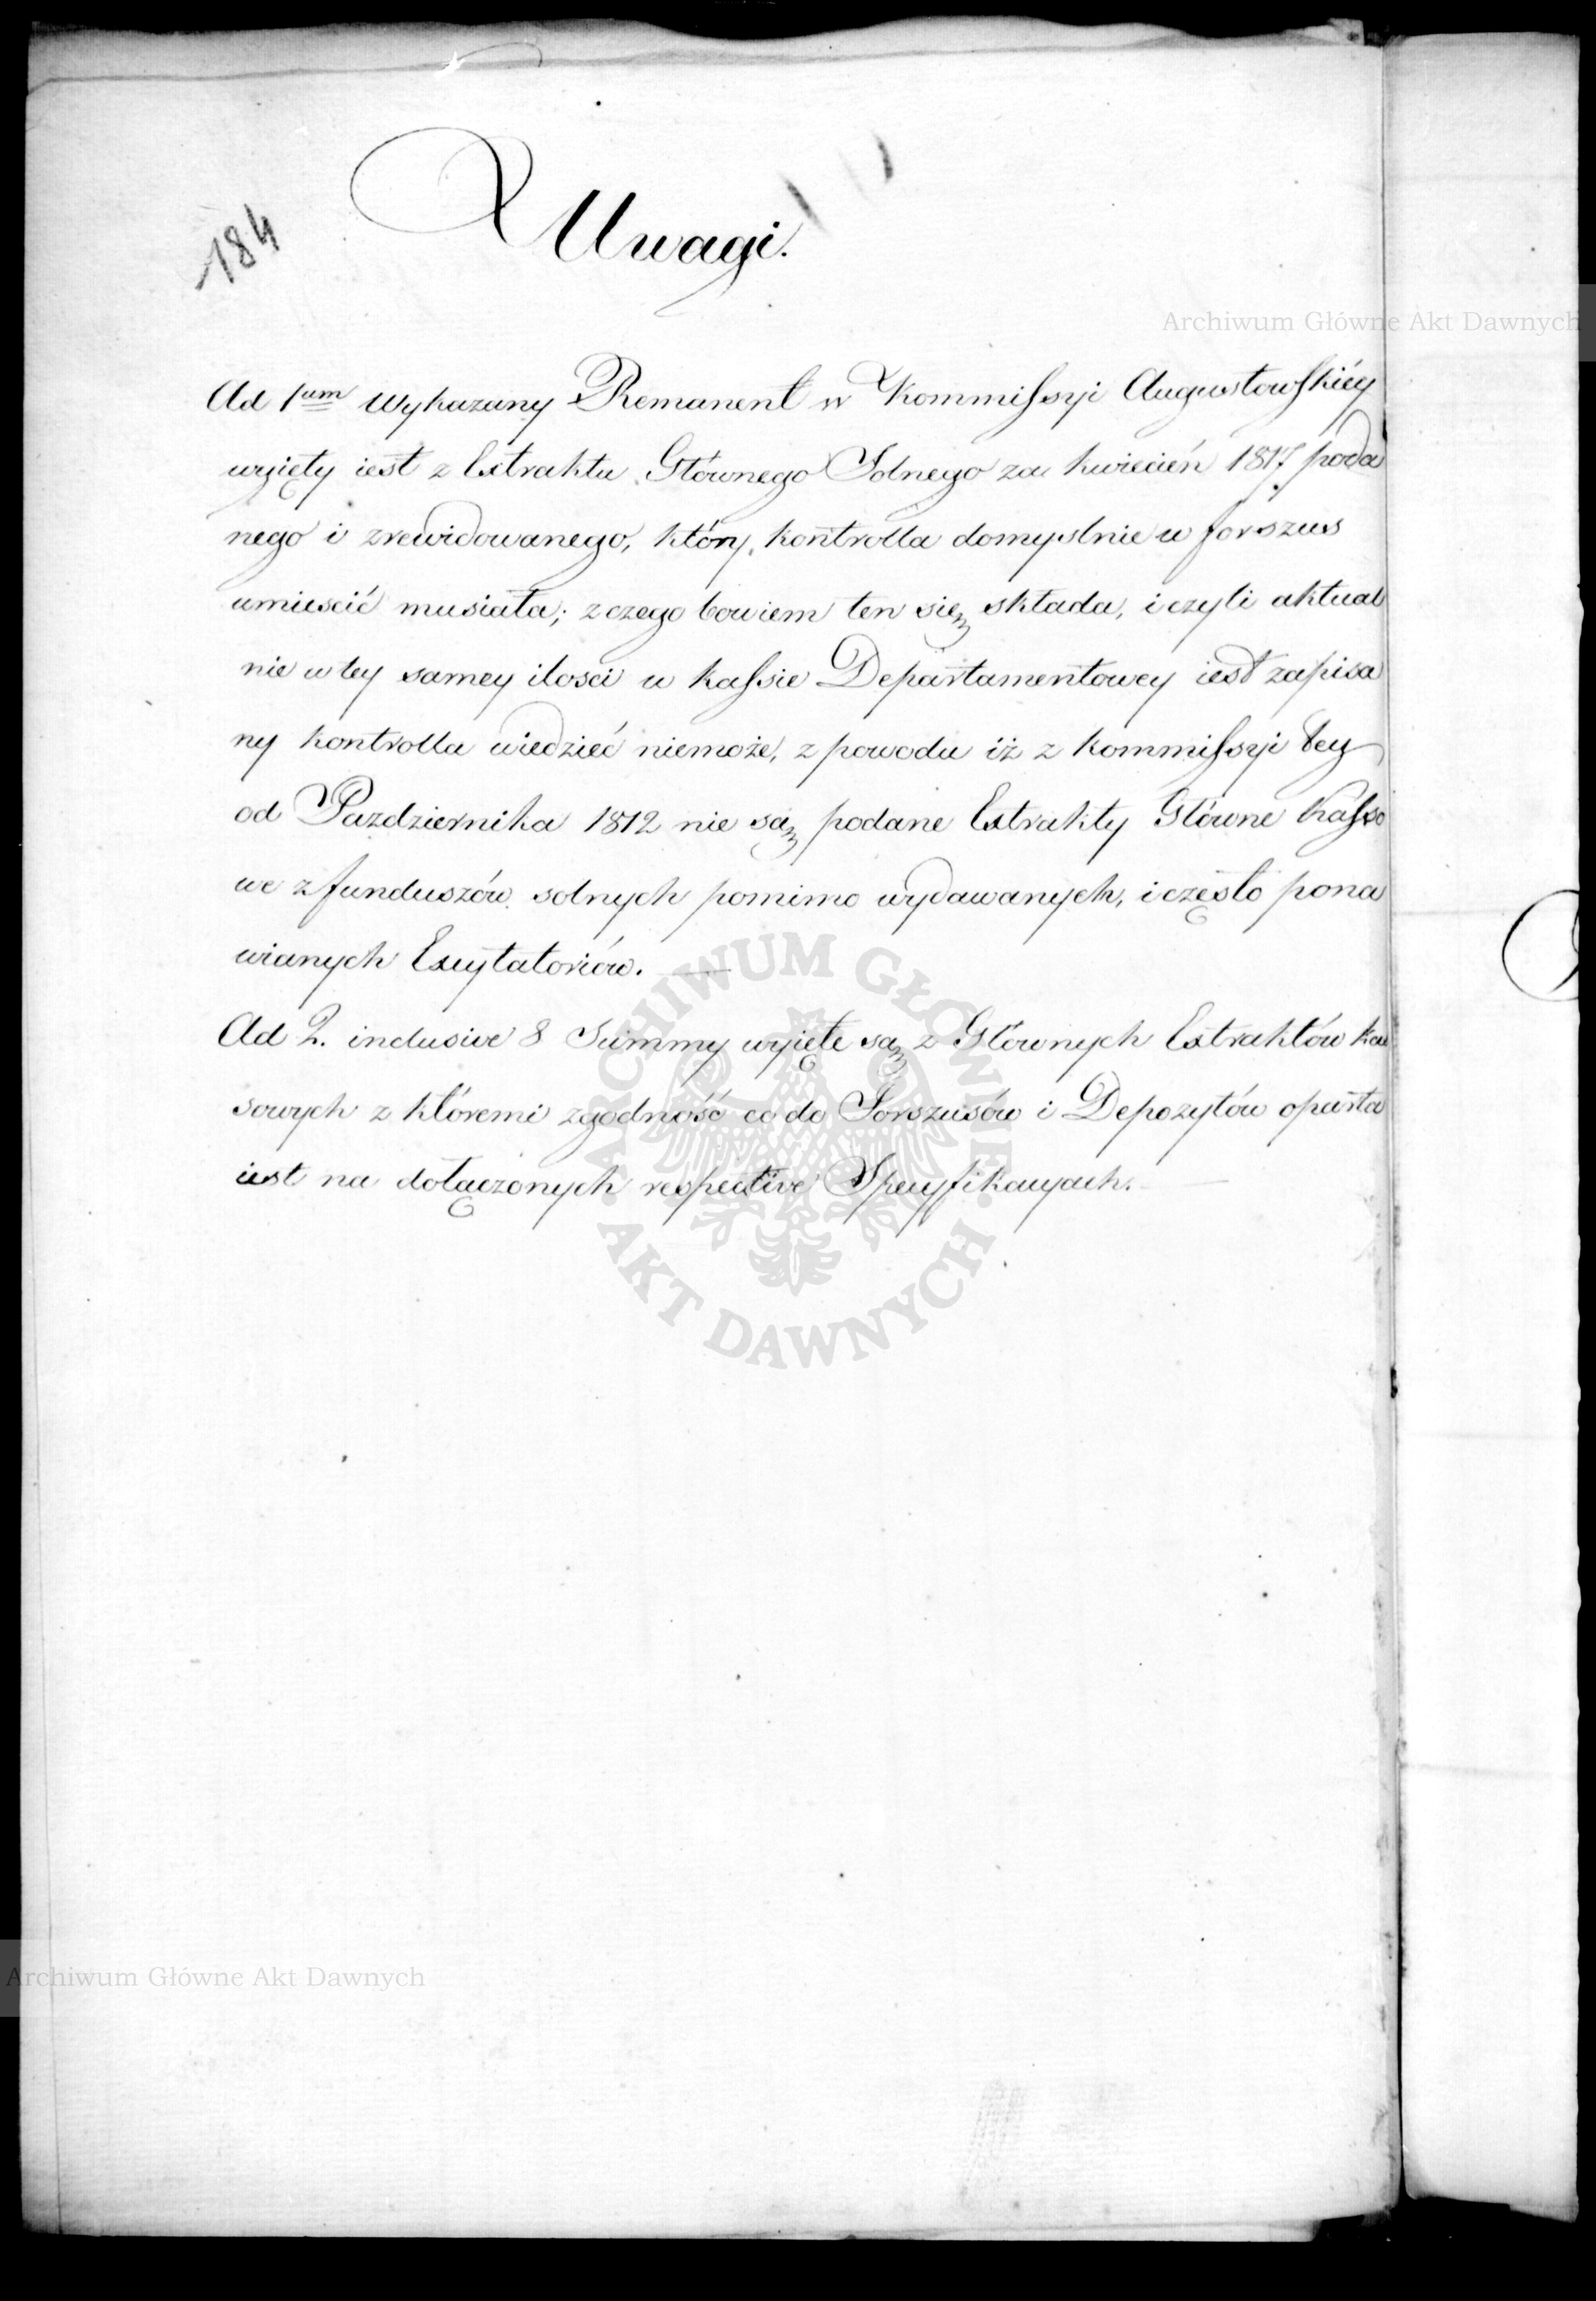 184
Uwagi.
Archiwum Główne Akt Dawnych
Ad 1um Wykazany Remanent w Kommissyi Augustowskiéy
wyięty iest z Extraktu Głównego Solnego za kwiecień 1817 poda
nego i zrewidowanego, który kontrolla domyslnie w forszus
umiescić musiała; z czego bowiem ten się składa, i czyli aktual
nie w tey samey ilosci w kassie Departamentowey iest zapisa
ny kontrolla wiedzieć niemoże, z powodu iż z kommissyi tey
od Pazdziernika 1812 nie są podane Extrakty Główne Kasso
we z funduszów solnych pomimo wydawanych, i często pona
wianych Excytatoriów.
Ad 2. inclusive 8 Summy wyięte są z Głównych Extraktów kas
sowych z któremi zgodność co do Forszusów i Depozytów oparta
iest na dołączonych respective Specyfikacyach.
ARCHIWUM GŁÓWNE AKT DAWNYCH
Archiwum Główne Akt Dawnych